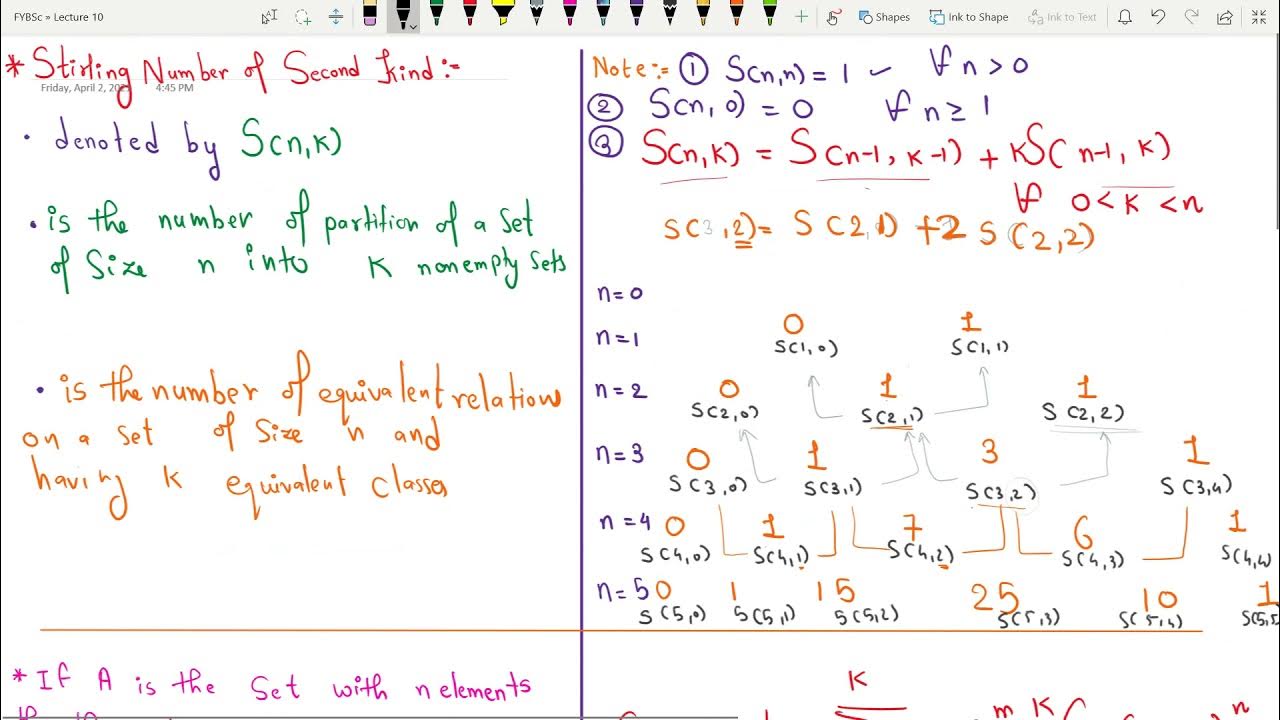 FYBSc » Lecture 10
Shapes
Ink to Shape
Ink to Text
* Stirling Number of Second Kind :-
Friday, April 2, 4:45 PM
• denoted by S(n,k)
• is the number of partition of a set
of size n into k nonempty sets
• is the number of equivalent relation
on a set of size n and
having k equivalent classes
* If A is the set with n elements
Note :- ① S(n,n) = 1 ∀ n > 0
② S(n,0) = 0 ∀ n ≥ 1
③ S(n,k) = S(n-1, k-1) + kS(n-1, k)
∀ 0 < k < n
S(3,2) = S(2,1) + 2 S(2,2)
n=0
n=1 0 1
S(1,0) S(1,1)
n=2 0 1 1
S(2,0) S(2,1) S(2,2)
n=3 0 1 3 1
S(3,0) S(3,1) S(3,2) S(3,4)
n=4 0 1 7 6 1
S(4,0) S(4,1) S(4,2) S(4,3) S(4,4)
n=5 0 1 15 25 10 1
S(5,0) S(5,1) S(5,2) S(5,3) S(5,4) S(5,5
k